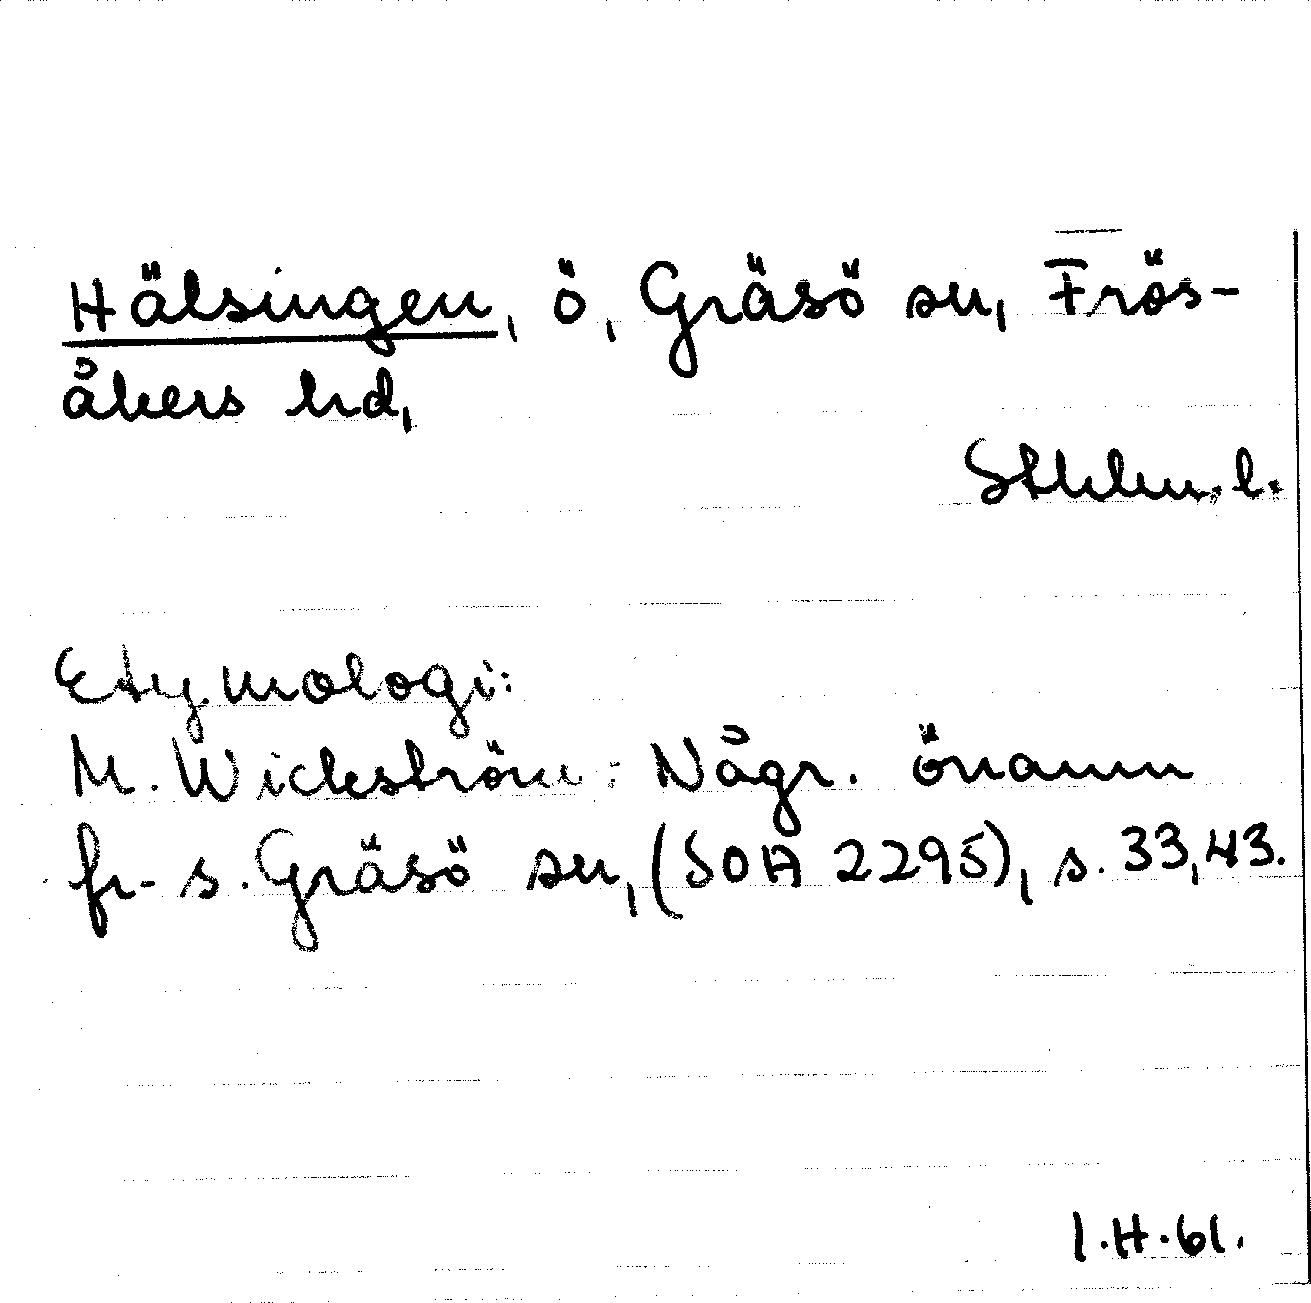 Hälsingen, ö, Gräsö sn, Frös-
åkers hd,
Sthlm. l.
Etymologi:
M. Wickström: Någr. önamn
fr. s. Gräsö sn, (SOA 2295), s. 33,43.
I.H.61.